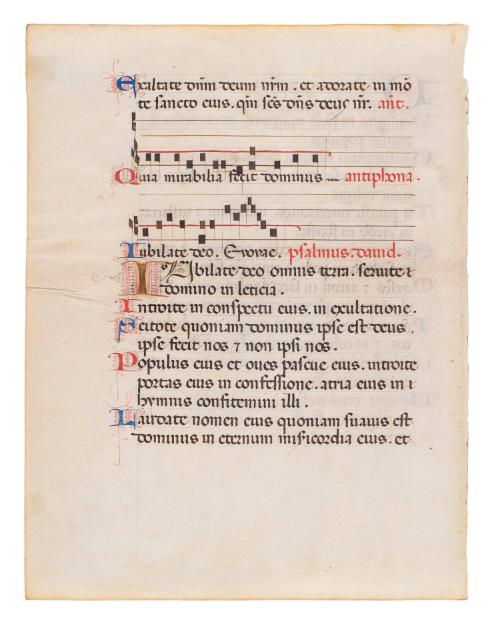 Exaltate dnm deum nrm . et adorate in mō
te sancto eius . qm scs dns deus nr. ant.
Quia mirabilia fecit dominus antiphona .
Iubilate deo . Evovae . psalmus. dauid .
IUbilate deo omnis terra . seruite
domino in leticia .
Introite in conspectu eius . in exultatione .
Scitote quoniam dominus ipse est deus .
ipse fecit nos ⁊ non ipsi nos .
Populus eius et oues pascue eius . introite
portas eius in confessione . atria eius in
hymnis confitemini illi .
Laudate nomen eius quoniam suauis est
dominus in eternum misericordia eius . et